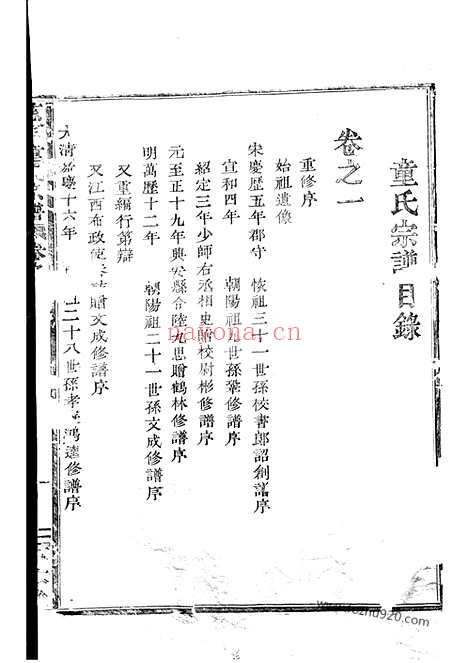 童氏宗譜目錄
卷之一
重修序
始祖遺像
宋慶歷五年郡守 恢祖三十一世孫校書郎詔創譜序
宣和四年 朝陽祖九世孫鞏修譜序
紹定三年少師右丞相史 贈校尉彬修譜序
元至正十九年興安縣令陸九思贈鶴林修譜序
明萬歷十二年 朝陽祖二十一世孫文成修譜序
又重編行第辯
又江西布政使 贈文成修譜序
大清 十六年 二十八世孫孝 鴻達修譜序
nayona.cn
www.fozhu920.com